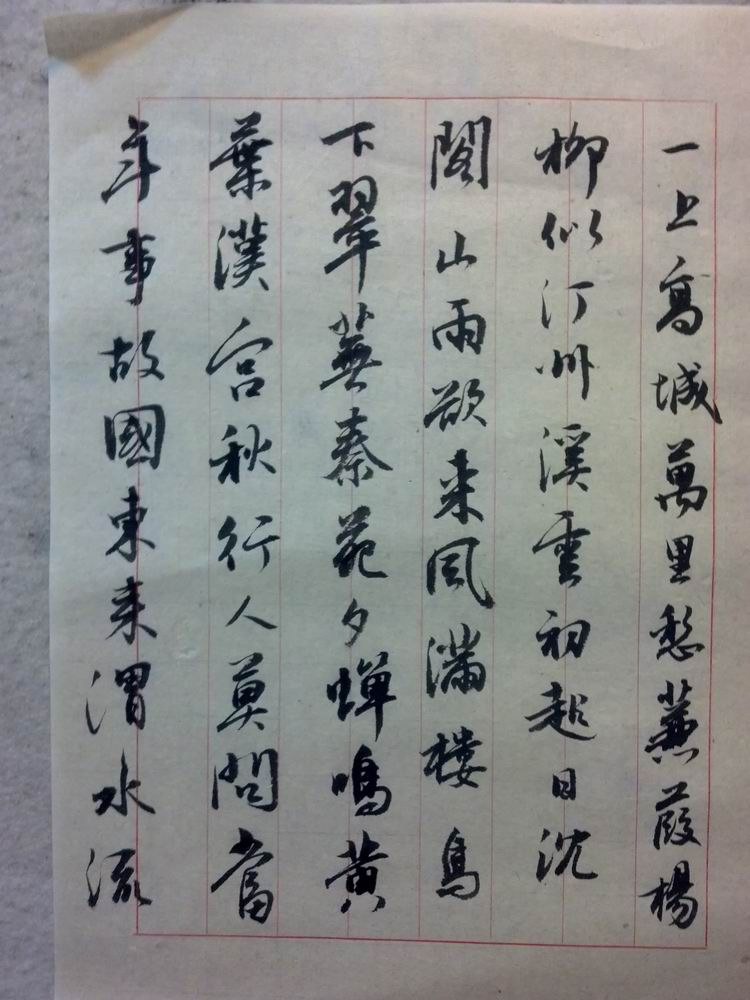 一上高城萬里愁蒹葭楊
柳似汀州溪雲初起日沈
閣山雨欲来風滿樓鳥
下翠蕪秦苑夕蟬鳴黄
葉漢宮秋行人莫問當
年事故國東来渭水流